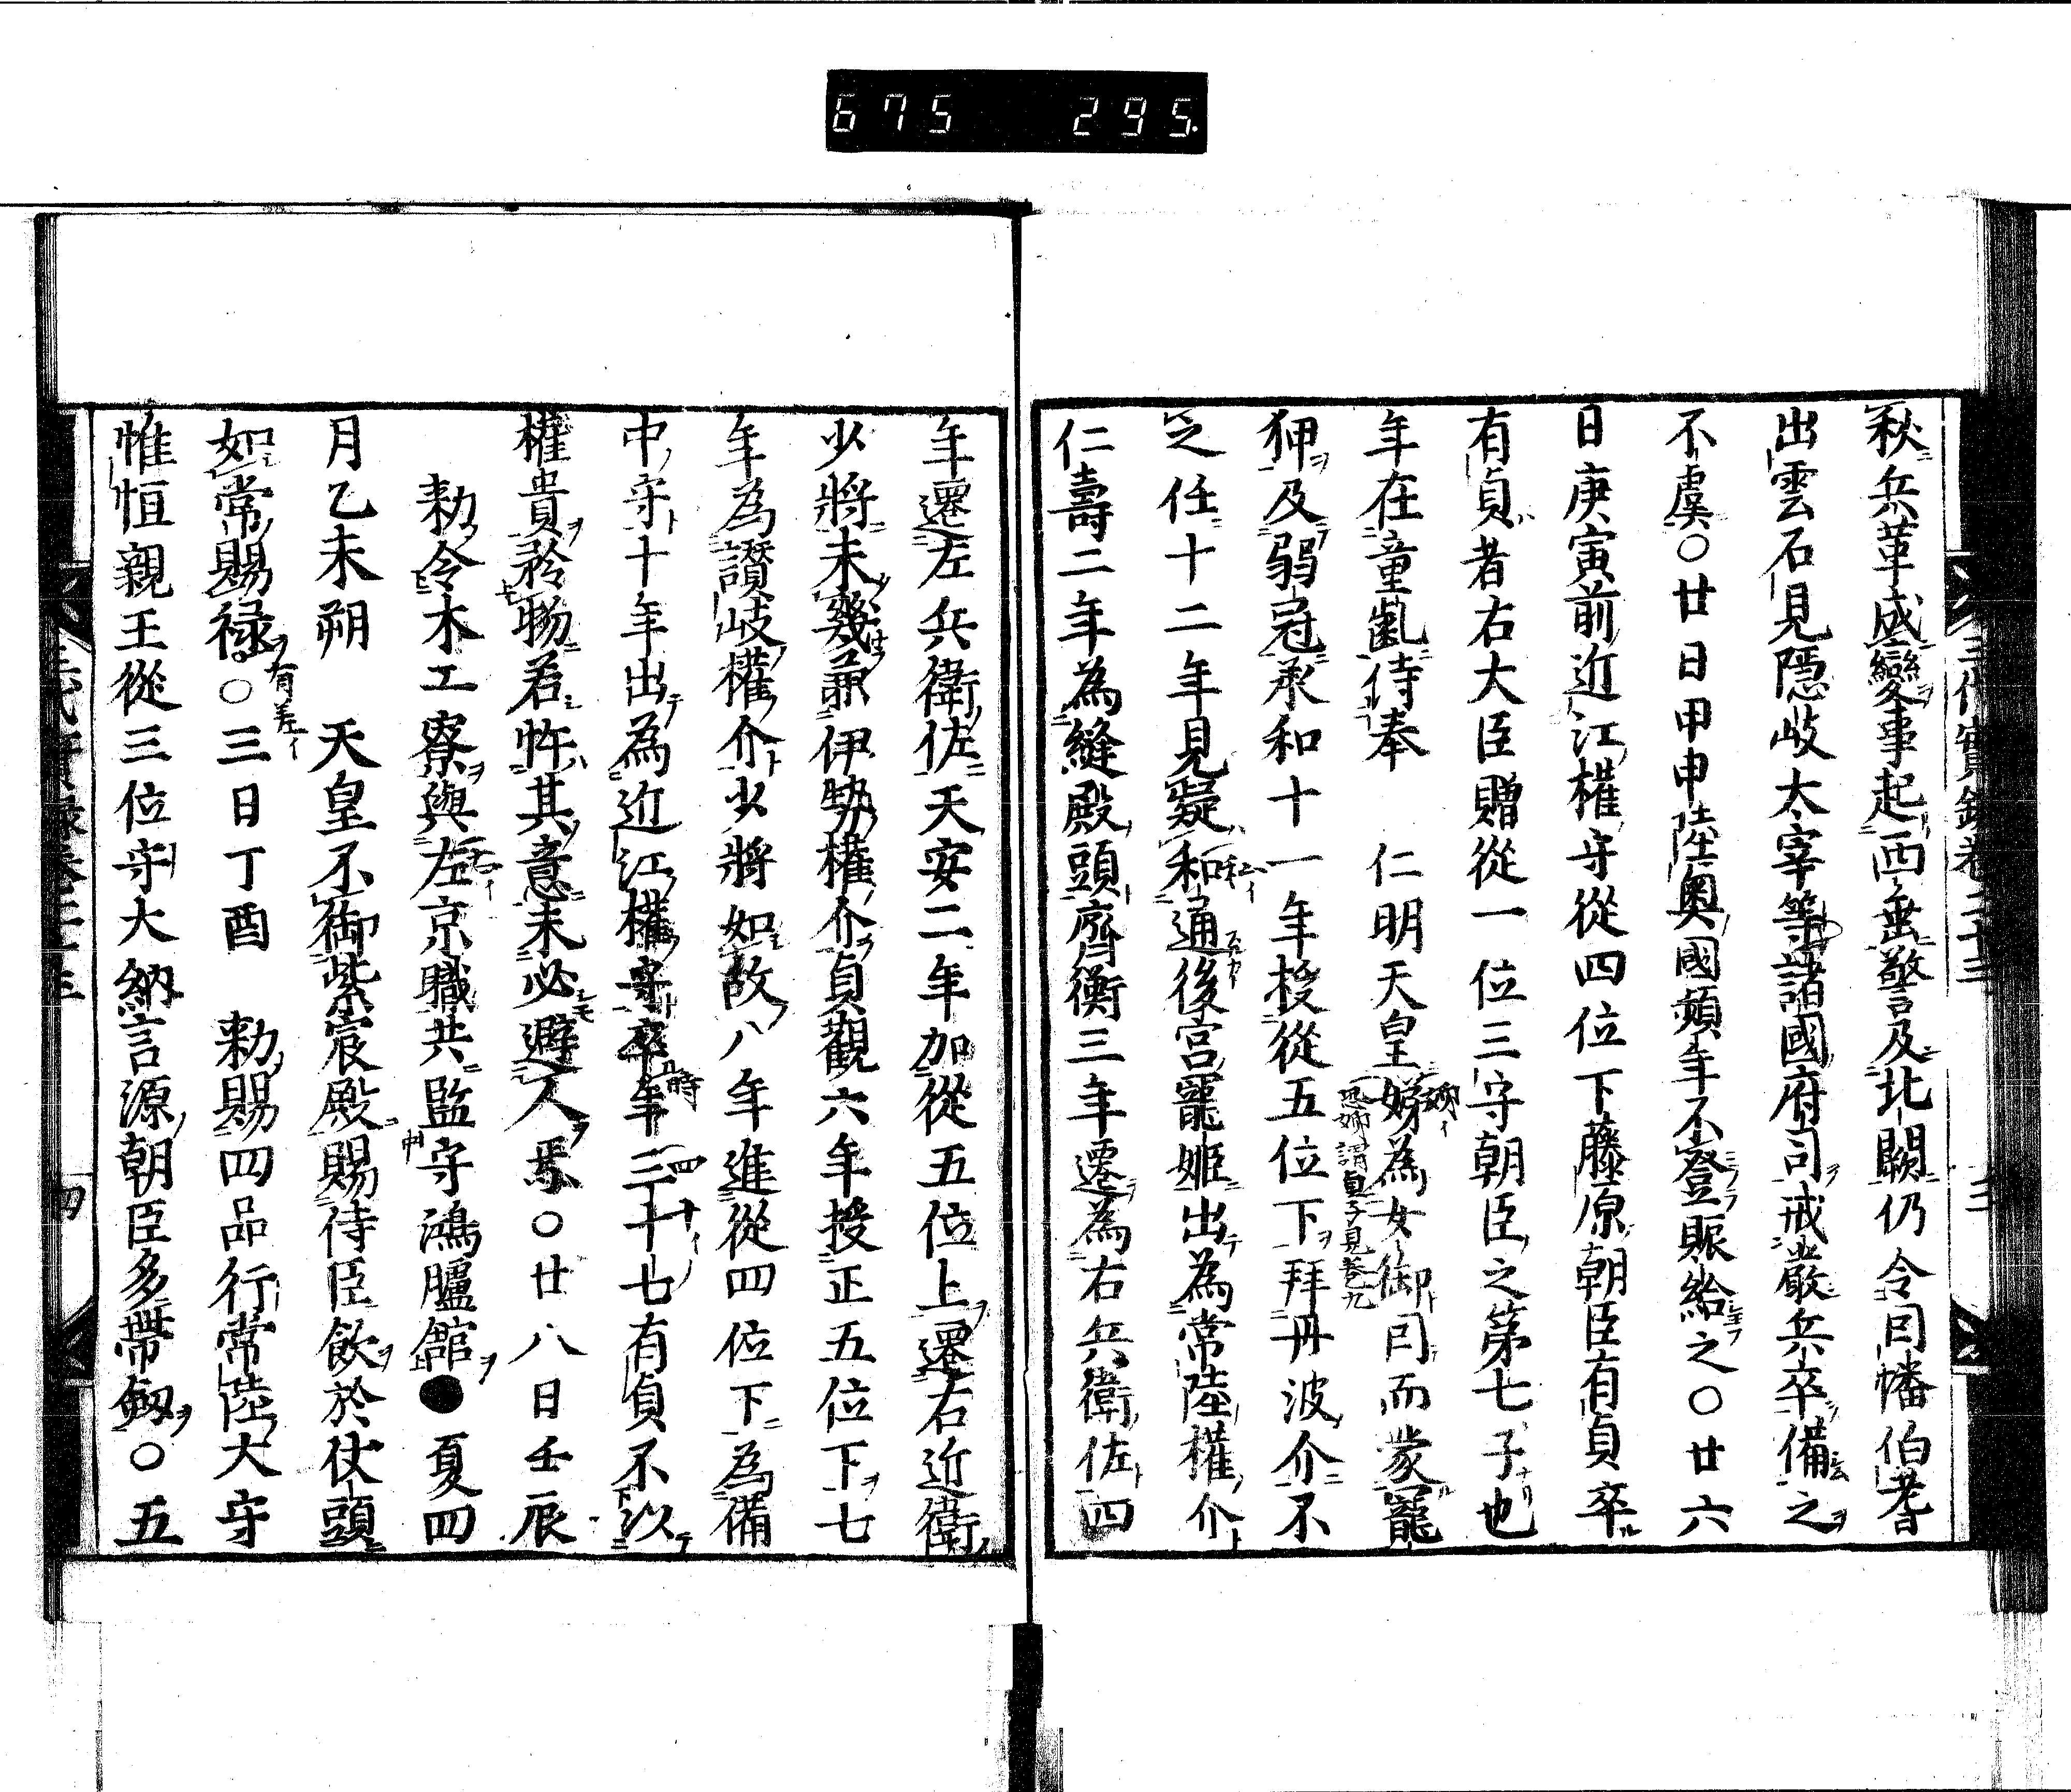 675 295.
秋兵革盛變事起西垂警及北闕仍令囙幡伯耆
出雲石見隱岐太宰等諸國府司戒嚴兵卒備之
不虞○廿日甲申陸奧國頻年不登賑給之○廿六
日庚寅前近江權守從四位下藤原朝臣有貞卒
有貞者右大臣贈從一位三守朝臣之第七子也
年在童齓侍奉 仁明天皇娣為女御囙而蒙寵
恐姉謂貞子見巻九
狎及弱冠承和十一年授從五位下拜丹波介不
之任十二年見疑和通後宮寵姬出為常陸權介
仁壽二年為縫殿頭齊衡三年遷為右兵衛佐四
年遷左兵衛佐天安二年加從五位上遷右近衛
少將未幾兼伊勢權介貞觀六年授正五位下七
年為讃岐權介少將如故八年進從四位下為備
中守十年出為近江權守卒年三十七有貞不以
時 四十イ
權貴矜物若忤其意未必避人焉○廿八日壬辰
勅令木工寮與左京職共監守鴻臚館●夏四
右イ
月乙未朔 天皇不御紫宸殿賜侍臣飲於仗頭
如常賜祿○三日丁酉 勅賜四品行常陸大守
有差イ
惟恒親王從三位守大納言源朝臣多帶劔○五
三代實録卷二十三
四